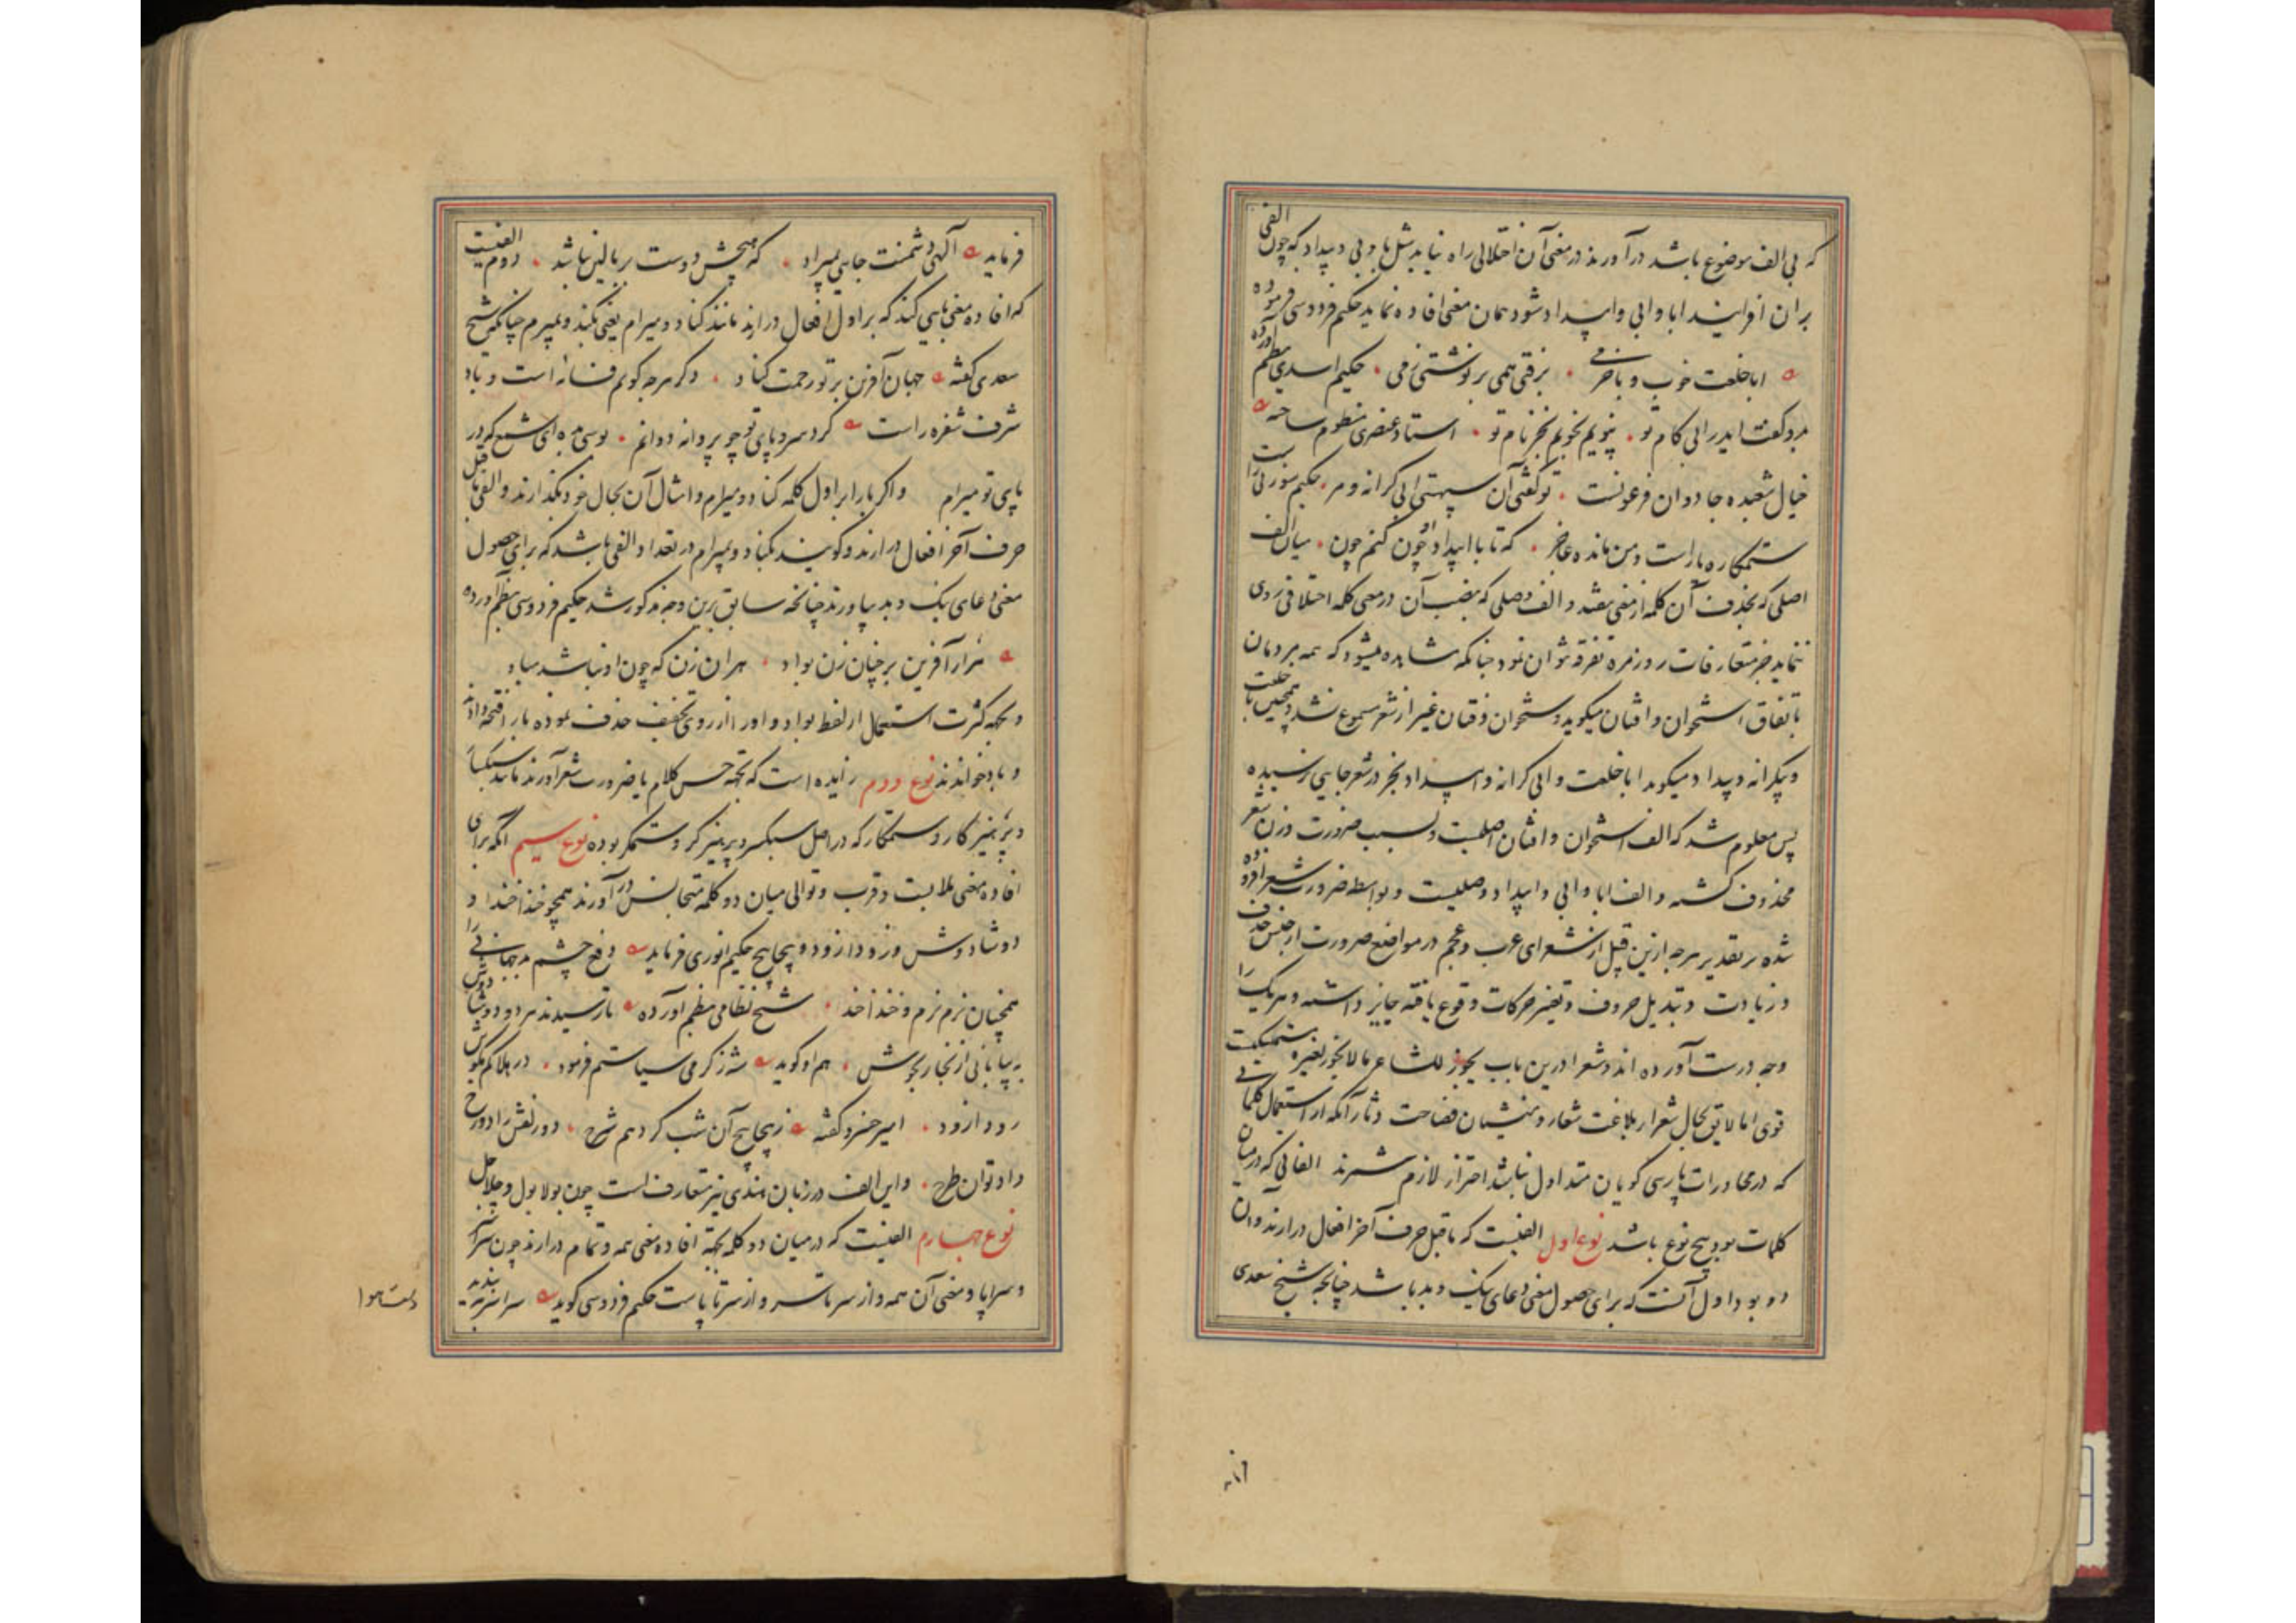 که بی الف موضوع باشد درآورند در معنی آن اختلالی راه نیابد مثل با و بی و بیداد که چون الفی
بران افزایند ابا و ابی و ابیداد شود همان معنی افاده نماید حکیم فردوسی فرموده
ابا خلعت خوب و با خرمی برفتی همی بر نوشتی زمی حکیم اسدی بنظم آورده
بدو گفت ایدر ابی کام تو نپویم نجویم بجز نام تو استاد عنصری منظوم ساخته
خیال شعبده جادوان فرعونست تو گفتی آن سپهستی ابی کرانه و مر حکیم سوزنی راست
ستمکاره یار است و من مانده عاجز که تا با ابیداد او چون کنم چون میان الف
اصلی که بحذف آن کلمه از معنی نیفتد و الف وصلی که بنصب آن در معنی کلمه اختلافی روی
ننماید جز بمتعارفات روزمره تفرقه نتوان نمود چنانکه مشاهده میشود که همه مردمان
باتفاق استخوان و افتان میگویند و ستخوان و فتان غیر از شعر مسموع نشد و همچنین با خلعت
و بیکرانه و بیداد میگویند ابا خلعت و ابی کرانه و ابیداد بجز در شعر جایی نرسیده
پس معلوم شد که الف استخوان و افتان اصلیست و بسبب ضرورت وزن شعر
محذوف گشته و الف ابا و ابی و ابیداد وصلیست و بواسطه ضرورت شعر افزوده
شده بر تقدیر هرچه ازین قبیل از شعرای عرب و عجم در مواضع ضرورت از جنس حذف
و زیادت و تبدیل حروف و تغییر حرکات وقوع یافته جایز داشته و هریک را
وجه درست آورده اند و شعرا درین باب یجوز للشاعر ما لا یجوز لغیره متمسکیست
قوی اما لایق بحال شعرا بلاغت شعار و منشیان فصاحت دثار آنکه از استعمال کلماتی
که در محاورات پارسی گویان متداول نباشد احتراز لازم شمرند الفاتی که در میان
کلمات بود پنج نوع باشد نوع اول الفیست که ماقبل حرف آخر افعال درارند و آن
دو بود اول آنست که برای حصول معنی دعای نیک و بد باشد چنانچه شیخ سعدی
فرماید الهی دشمنت جایی بمیراد که هیچش دوست بر بالین نباشد دوم الفیست
که افاده معنی بایی کند که بر اول افعال درارند مانند کناد و میرام یعنی بکند و بمیرم چنانکه شیخ
سعدی گفته جهان آفرین بر تو رحمت کناد دگر هرچه گویم فسانه است و باد
شرف شفره راست گرد سر و پای تو چو پروانه دوانم بوسی بده ای شمع که در
پای تو میرام و اگر با را بر اول کلمه کناد و میرام و امثال آن بحال خود نگهدارند و الفی ماقبل
حرف آخر افعال درارند و گویند بکناد و بمیرام در تعداد الفی باشد که برای حصول
معنی دعای نیک و بد بیاورند چنانچه سابق برین وجه مذکور شد حکیم فردوسی بنظم آورده
هزار آفرین بر چنان زن بواد هران زن که چون او نباشد مباد
و بجهة کثرت استعمال از لفظ بواد واو را از روی تخفیف حذف نموده با را فتحه دادند
و باد خواندند نوع دوم زایده است که بجهة حسن کلام یا ضرورت شعر آورند مانند سبکسار
و پرهیزگار و ستمکار که در اصل سبکسر و پرهیزگر و ستمگر بوده نوع سیم آنکه برای
افاده معنی ملابست و قرب و توالی میان دو کلمه متجانس درآورند همچو خندا خند و
دوشادوش و زودازود و پیچاپیچ حکیم انوری فرماید دفع چشم بد جهانی را
همچنان نرم نرم و خندا خند شیخ نظامی بنظم آورده باز رسیدند هر دو دوشادوش
به بیابانی از بخار بجوش هم او گوید شه ز گرمی سیاستم فرمود در هلاکم مکوش
زودازود امیر خسرو گفته ز پیچاپیچ آن شب کردم شرح دو زلفش را دو رخ
داد توان طرح و این الف در زبان هندی نیز متعارف است چون بولا بول و چلاچل
نوع چهارم الفیست که در میان دو کلمه بجهة افاده معنی همه و تمام درارند چون سراسر
و سراپا و معنی آن همه و از سر تا سر و از سر تا پاست حکیم فردوسی گوید سراسر